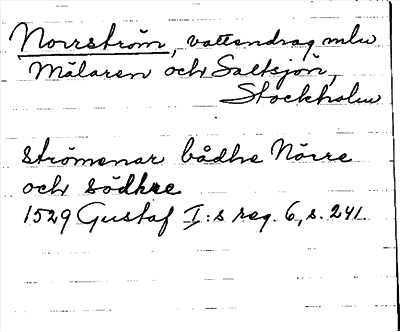 Norrström, vattendrag mlu
Mälaren och Saltsjön,
Stockholm
strömenar bådhe Nörre
och södhre
1529 Gustaf I:s reg. 6, s. 241.